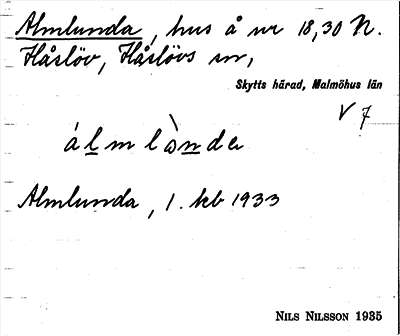 Almlunda, hus å nr 18,30 N.
Håslöv, Håslövs sn,
Skytts härad, Malmöhus län
V 7
álmlànda
Almlunda, 1. kb 1933
Nils Nilsson 1935